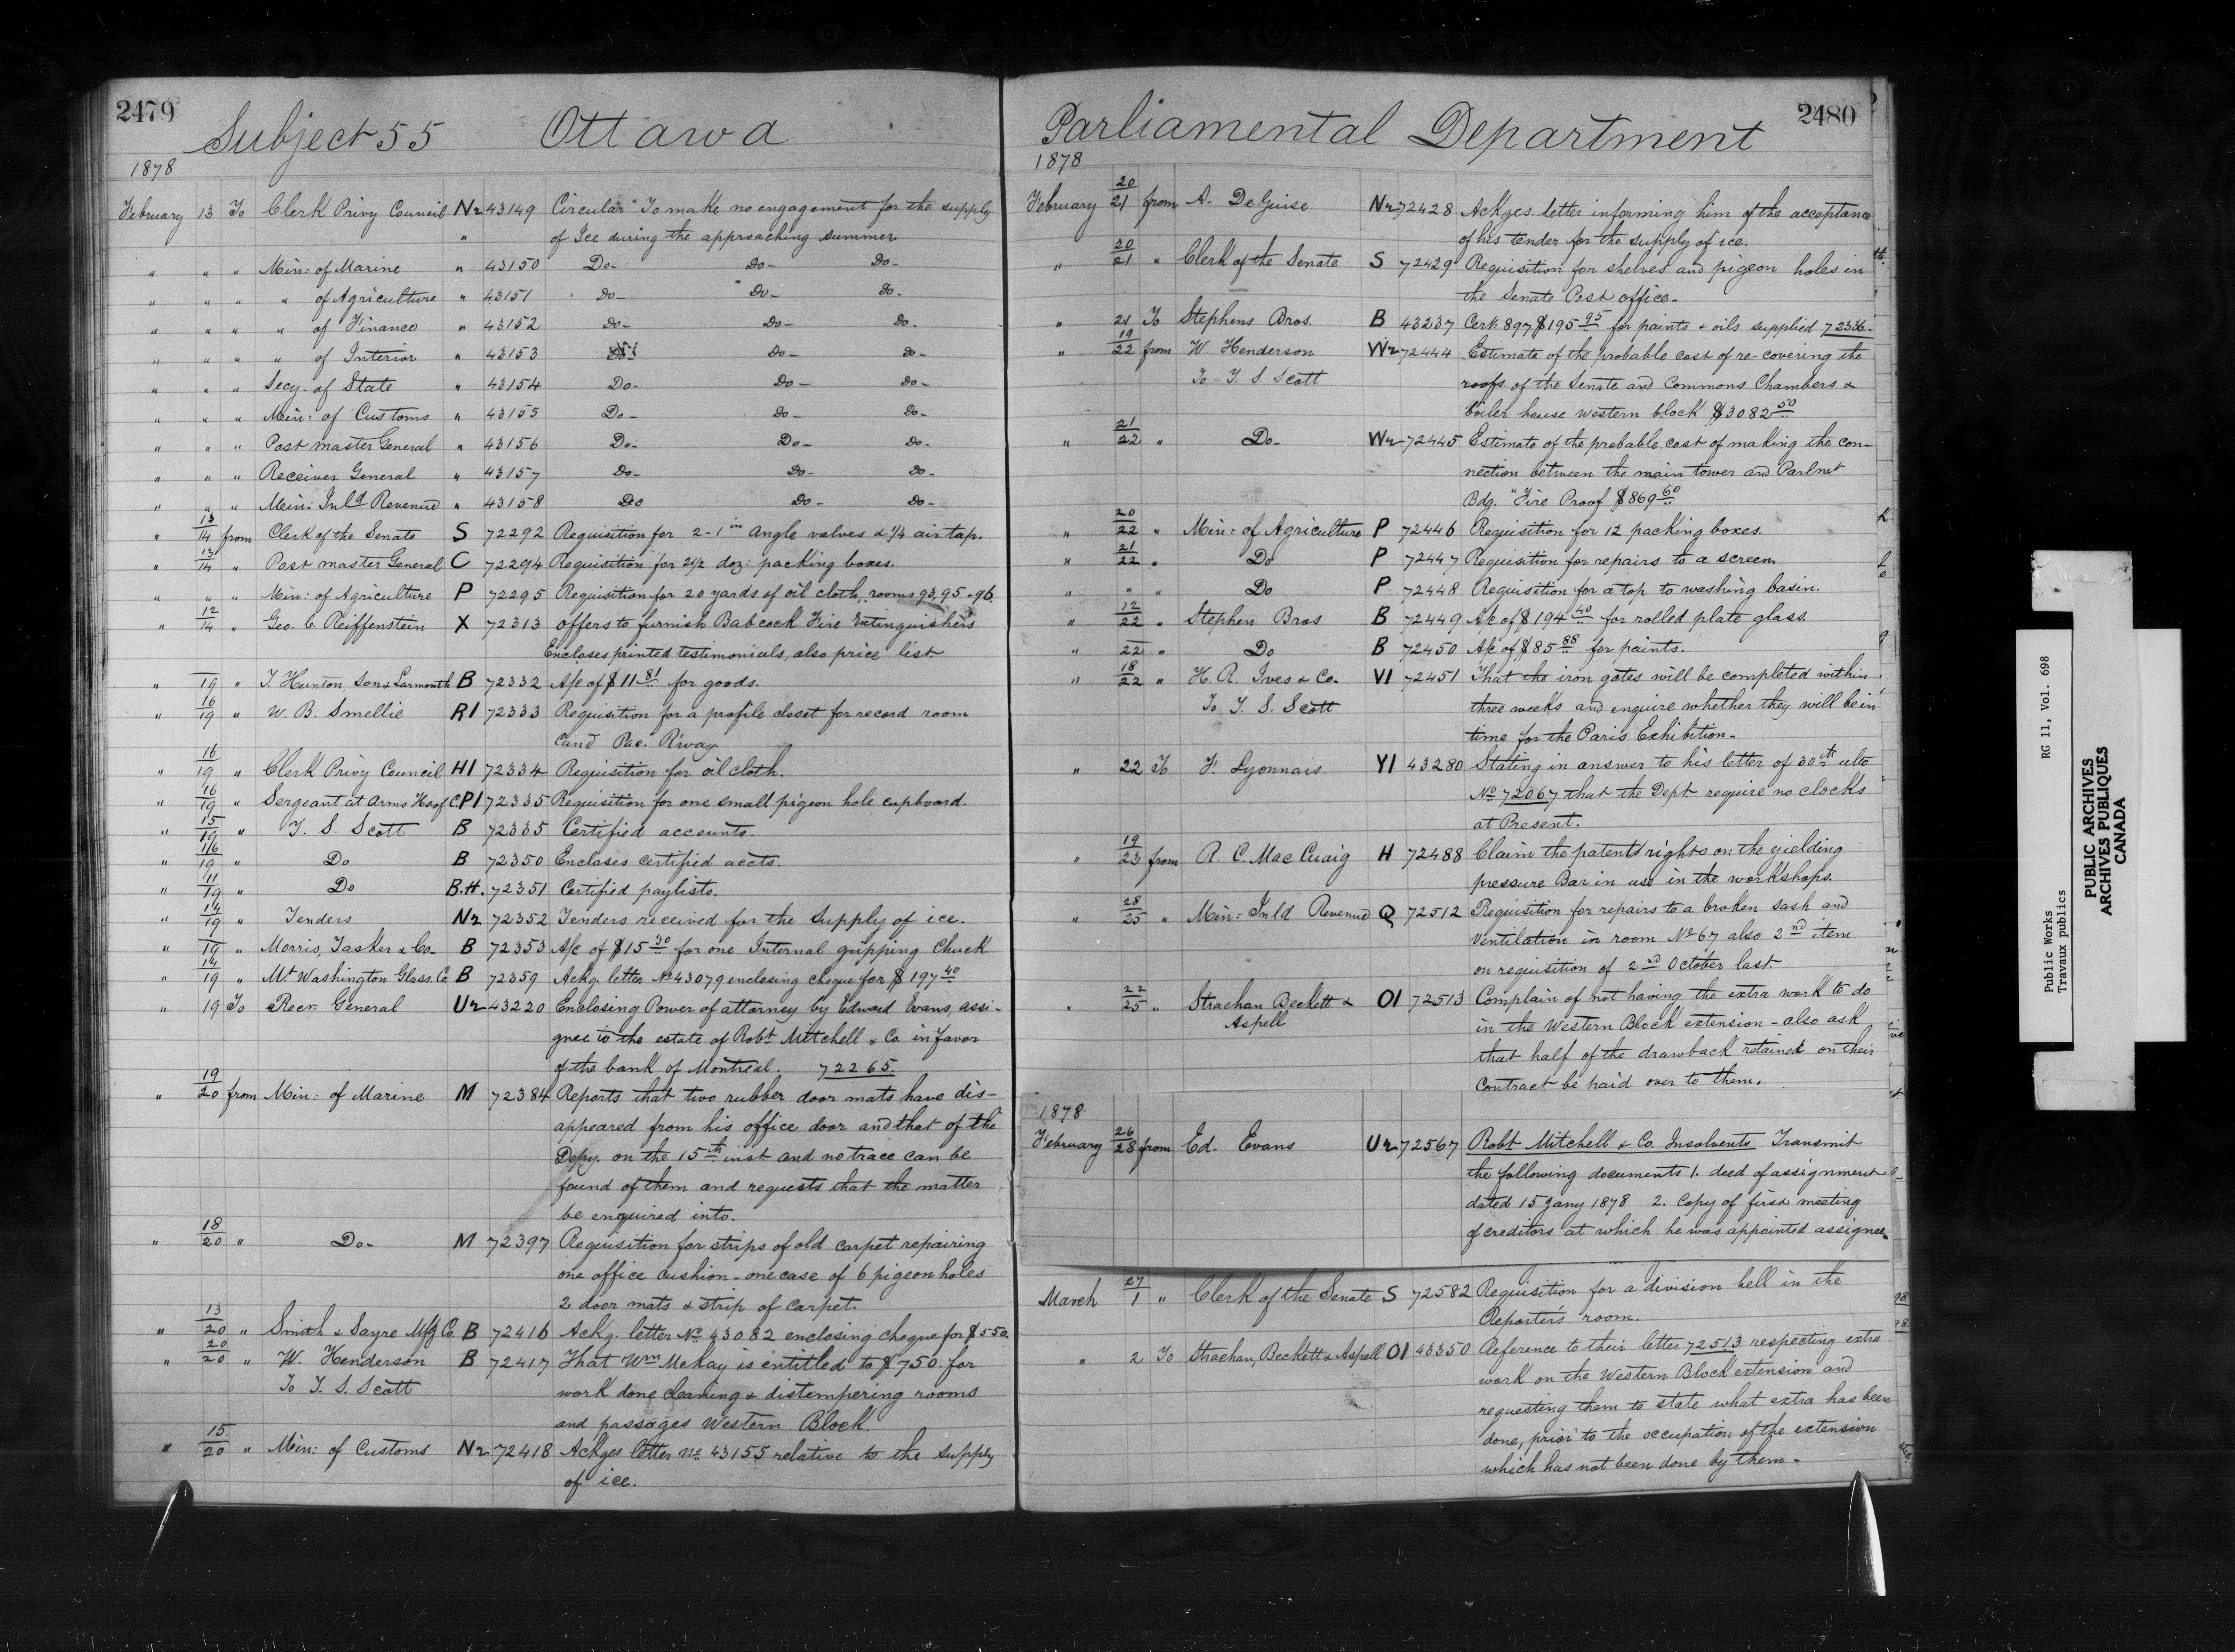 2479
Subject 55 Ottawa
1878
February 13 To Clerk Privy Council Nr 43149 Circular "To make no engagement for the supply
" of Ice during the approaching summer.
" " " Min: of Marine " 43150 Do- Do- Do-
" " " " of Agriculture " 43151 Do- Do- Do-
" " " " of Finance " 43152 Do- Do- Do-
" " " " of Interior " 43153 Do- Do- Do-
" " " Secy. of State " 43154 Do- Do- Do-
" " " Min: of Customs " 43155 Do- Do- Do-
" " " Post master General " 43156 Do- Do- Do-
" " " Receiver General " 43157 Do- Do- Do-
" " " Min: Inld Revenue " 43158 Do Do- Do-
" 13/14 from Clerk of the Senate S 72292 Requisition for 2-1 in angle valves & 1/4 air tap.
" 13/14 " Post master General C 72294 Requisition for 2 1/2 doz: packing boxes.
" " " Min: of Agriculture P 72295 Requisition for 20 yards of oil cloth, rooms 93, 95-96.
" 12/14 " Geo. C. Reiffenstein X 72313 offers to furnish Babcock Fire Extinguishers
Encloses printed testimonials, also price list.
" 19 " T. Hunton, Son & Larmonth B 72332 A/c of $11 81 for goods.
" 16/19 " W. B. Smellie R1 72333 Requisition for a profile closet for record room
Cand Pac. R'way.
" 16/19 " Clerk Privy Council H1 72334 Requisition for oil cloth.
" 16/19 " Sergeant at Arms H of C P1 72335 Requisition for one small pigeon hole cupboard.
" 15/19 " T. S. Scott B 72335 Certified accounts.
" 16/19 " Do B 72350 Encloses certified accts.
" 11/19 " Do B.H. 72351 Certified paylists.
" 14/19 " Tenders Nr 72352 Tenders received for the Supply of ice.
" 19 " Morris, Tasker & Co- B 72353 A/c of $15 30 for one Internal gripping Chuck
" 14/19 " Mt Washington Glass. Co B 72359 Ackg. letter No 43079 enclosing cheque for $197 40
" 19 To Recr. General Ur 43220 Enclosing Power of attorney by Edward Evans, assi-
gnee to the estate of Robt Mitchell & Co. in favor
of the bank of Montreal. 72265.
" 19/20 from Min: of Marine M 72384 Reports that two rubber door mats have dis-
appeared from his office door and that of the
Depy. on the 15th inst and no trace can be
found of them and requests that the matter
be enquired into.
" 18/20 " Do- M 72397 Requisition for strips of old carpet repairing
one office cushion - one case of 6 pigeon holes
2 door mats & strip of carpet.
" 13/20 " Smith & Sayre Mfg Co. B 72416 Ackg. letter No 43082 enclosing cheque for $550.
" 20/20 " W. Henderson B 72417 That Wm McKay is entitled to $750. for
To T. S. Scott work done cleaning & distempering rooms
and passages Western Block.
" 15/20 " Min: of Customs Nr 72418 Ackges letter No. 43155 relative to the supply
of ice.
2480
Parliamental Department
1878
February 20/21 from A. DeGuise Nr 72428 Ackges. letter informing him of the acceptance
of his tender for the supply of ice.
" 20/21 " Clerk of the Senate S 72429 Requisition for shelves and pigeon holes in
the Senate Post office.
" 21 To Stephens Bros. B 43237 Cerk. 897 $195 95 for paints & oils supplied 72336.
" 19/22 from W. Henderson Wr 72444 Estimate of the probable cost of re-covering the
To - T. S. Scott roofs of the Senate and Commons Chambers &
boiler house western block $3082 50
" 21/22 " Do- Wr 72445 Estimate of the probable cost of making the con-
nection between the main tower and Parlmt
Bdg. "Fire Proof $869 60
" 20/22 " Min: of Agriculture P 72446 Requisition for 12 packing boxes.
" 21/22 " Do P 72447 Requisition for repairs to a screen.
" " " Do P 72448 Requisition for a top to washing basin.
" 12/22 " Stephen Bros B 72449 A/c of $194 40 for rolled plate glass.
" 22 " Do B 72450 A/c of $85 88 for paints.
" 18/22 " H. R. Ives & Co. V1 72451 That the iron gates will be completed within
To T. S. Scott three weeks and enquire whether they will be in
time for the Paris Exhibition.
" 22 To F. Lyonnais Y1 43280 Stating in answer to his letter of 30th ulto
No 72067 that the Dept. require no clocks
at Present.
" 19/23 from R. C. Mac Cuaig H 72488 Claim the patents rights on the yielding
pressure Bar in use in the workshops.
" 28/25 " Min: Inld Revenue Q 72512 Requisition for repairs to a broken sash and
ventilation in room No 67 also 2nd item
on requisition of 2nd October last.
" 22/25 " Strachan Beckett & O1 72513 Complain of not having the extra work to do
Aspell in the Western Block extension - also ask
that half of the drawback retained on their
contract be paid over to them.
1878
February 26/28 from Ed. Evans Ur 72567 Robt Mitchell & Co. Insolvents Transmit
the following documents 1. deed of assignment
dated 15 Jany 1878 2. Copy of first meeting
of creditors at which he was appointed assignee.
March 27/1 " Clerk of the Senate S 72582 Requisition for a division bell in the
Reporters room.
" 2 To Strachan, Beckett & Aspell O1 43350 Reference to their letter 72513 respecting extra
work on the Western Block extension and
requesting them to state what extra has been
done, prior to the occupation of the extension
which has not been done by them.
Public Works
Travaux publics
RG 11, Vol. 698
PUBLIC ARCHIVES
ARCHIVES PUBLIQUES
CANADA